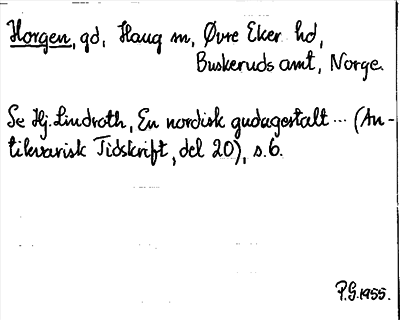 Horgen, gd, Haug sn, Øvre Eker hd,
Buskeruds amt, Norge.
Se Hj. Lindroth, En nordisk gudagestalt ... (An-
tikvarisk Tidskrift, del 20), s. 6.
P.G. 1955.